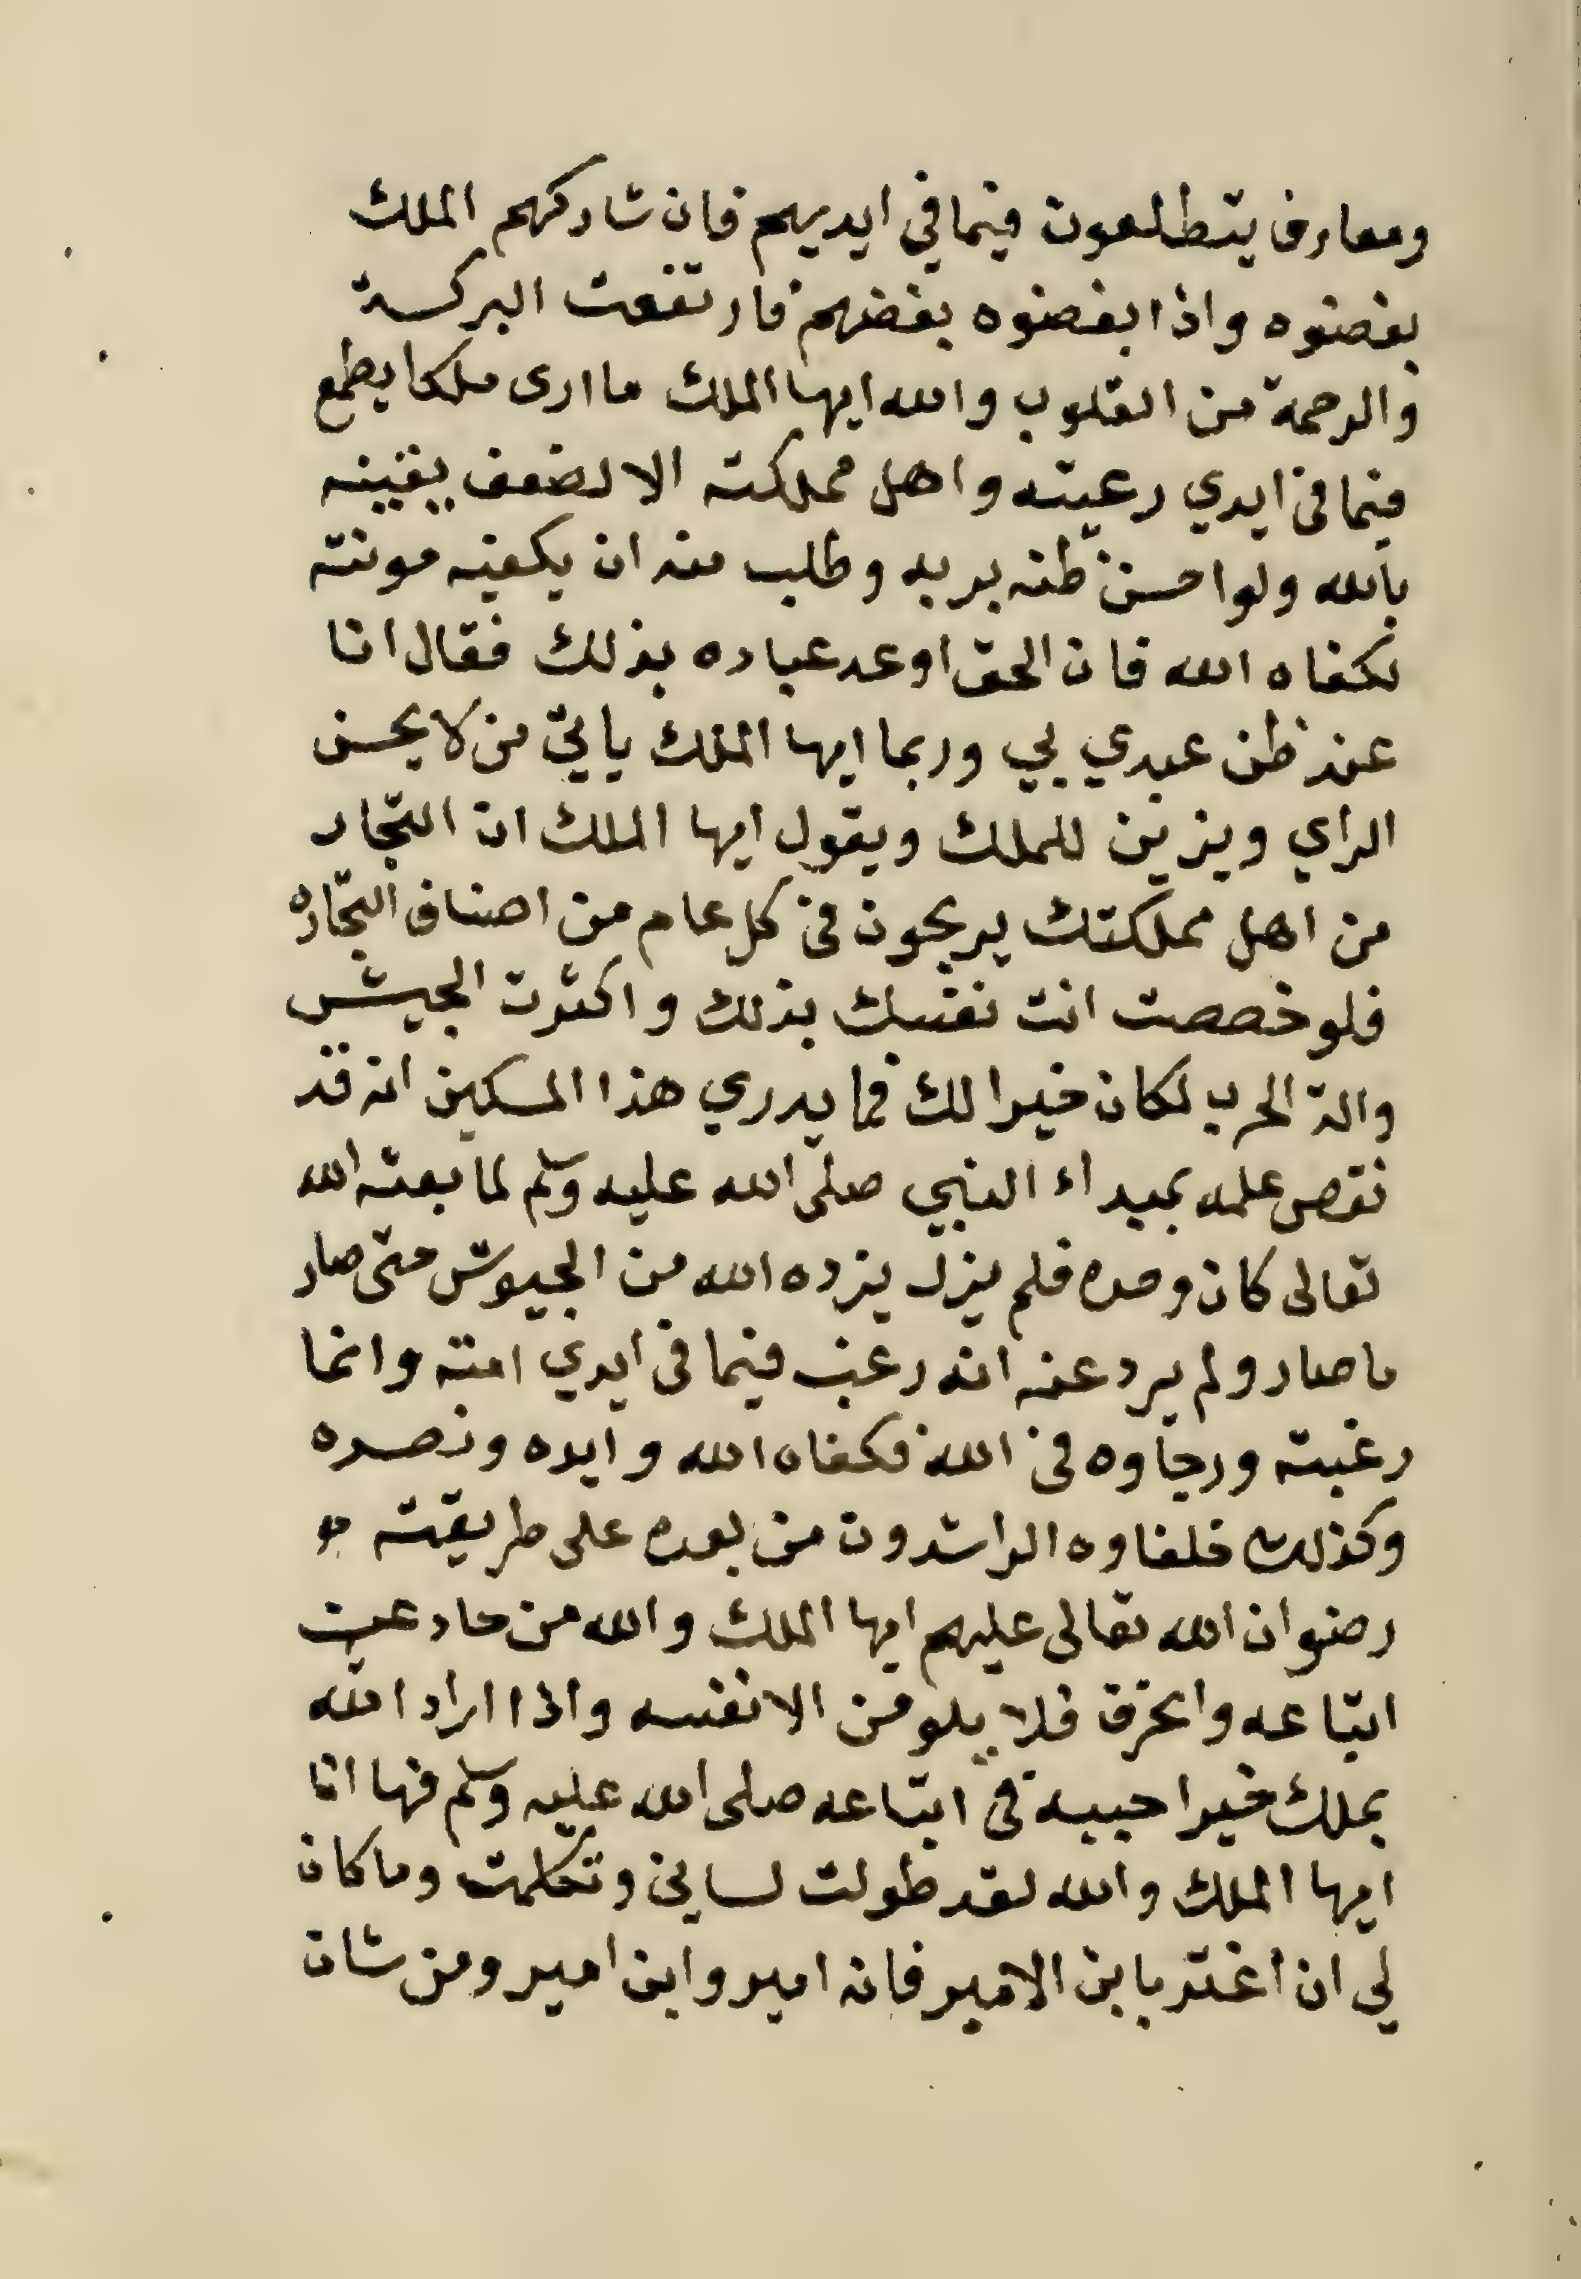 ومعارف يتطلعون فيما في ايديهم فان شاركهم الملك
بغضوه واذا بغضوه بغضهم فارتفعت البركة
والرحمة من القلوب والله ايها الملك ما ارى ملكا يطمع
فيما في ايدي رعيته واهل مملكته الا لضعف يقينه
بالله ولو احسن ظنه بربه وطلب منه ان يكفيه مونته
لكفاه الله فان الحق اوعد عباده بذلك فقال انا
عند ظن عبدي بي وربما ايها الملك ياتي من لا يحسن
الراي ويزين للملك ويقول ايها الملك ان التجار
من اهل مملكتك يربحون في كل عام من اصناف التجاره
فلو خصصت انت نفسك بذلك واكثرت الجيش
والة الحرب لكان خيرا لك فما يدري هذا المسكين انه قد
نقص علمه بمبداء النبي صلى الله عليه وسلم لما بعثه الله
تعالى كان وحده فلم يزل يزده الله من الجيوش حتى صار
ما صار ولم يرد عنه انه رغب فيما في ايدي امته وانما
رغبته ورجاوه في الله فكفاه الله وايده ونصره
وكذلك خلفاوه الراشدون من بعده على طريقته
رضوان الله تعالى عليهم ايها الملك والله من حاد عن
اتباعه وانحرف فلا يلومن الا نفسه واذا اراد الله
بملك خيرا حببه في اتباعه صلى الله عليه وسلم فها انا
ايها الملك والله لقد طولت لساني وتكلمت وما كان
لي ان اغتر بابن الامير فانه امير وابن امير ومن شان